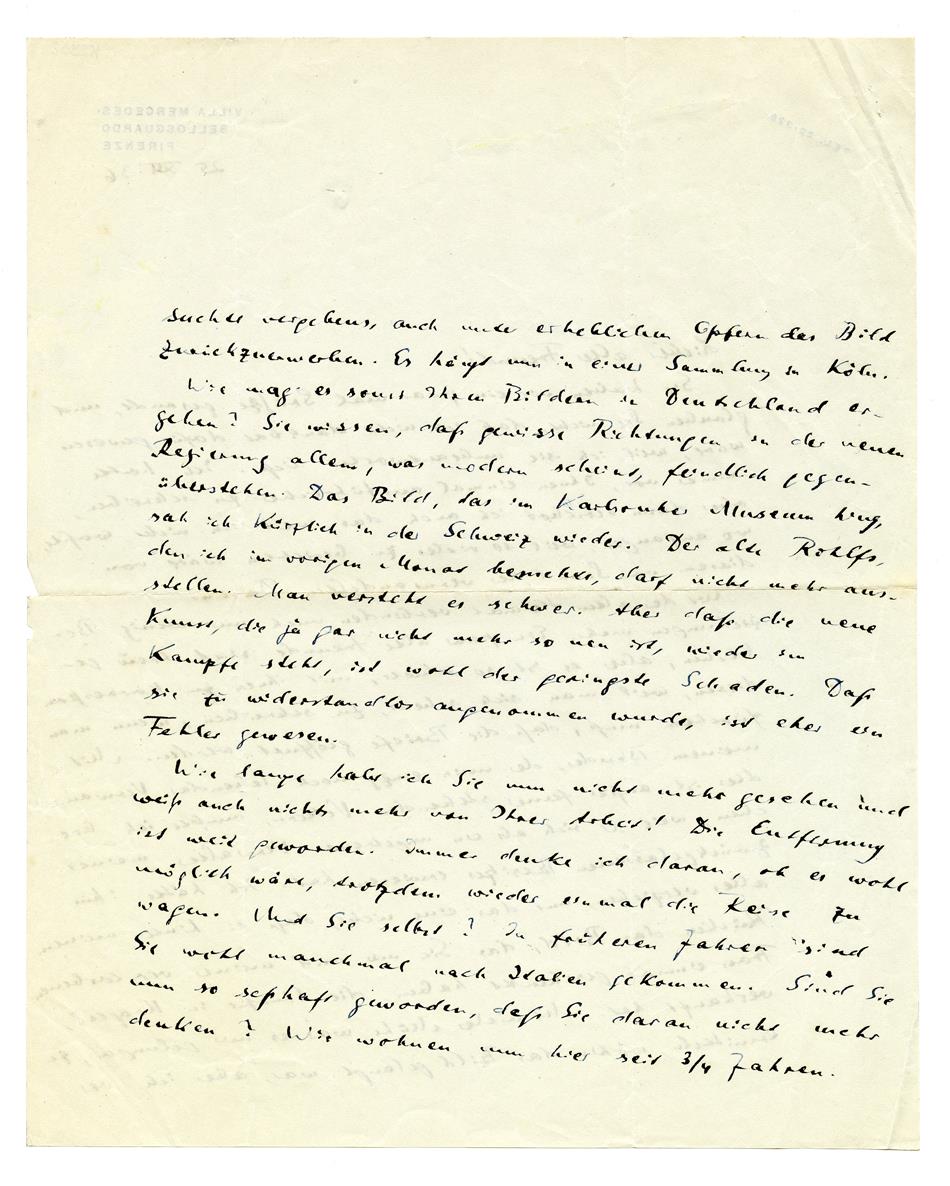 VILLA MERCEDES
BELLOSGUARDO
FIRENZE
suchte vergebens, auch unter erheblichen Opfern das Bild
zurückzuerwerben. Es hängt nun in einer Sammlung in Köln.
Wie mag es sonst Ihren Bildern in Deutschland er-
gehen? Sie wissen, daß gewisse Richtungen in der neuen
Regierung allem, was modern scheint, feindlich gegen-
überstehen. Das Bild, das im Karlsruher Museum hing,
sah ich kürzlich in der Schweiz wieder. Der alte Rohlfs,
den ich im vorigen Monat besuchte, darf nicht mehr aus-
stellen. Man versteht es schwer. Aber daß die neue
Kunst, die ja gar nicht mehr so neu ist, wieder im
Kampfe steht, ist wohl der geringste Schaden. Daß
sie zu widerstandlos angenommen wurde, ist eher ein
Fehler gewesen.
Wie lange habe ich Sie nun nicht mehr gesehen und
weiß auch nichts mehr von Ihrer Arbeit! Die Entfernung
ist weit geworden. Immer denke ich daran, ob es wohl
möglich wäre, trotzdem wieder einmal die Reise zu
wagen. Und Sie selbst? In früheren Jahren sind
Sie wohl manchmal nach Italien gekommen. Sind Sie
nun so seßhaft geworden, daß Sie daran nicht mehr
denken? Wir wohnen nun hier seit 3/4 Jahren.